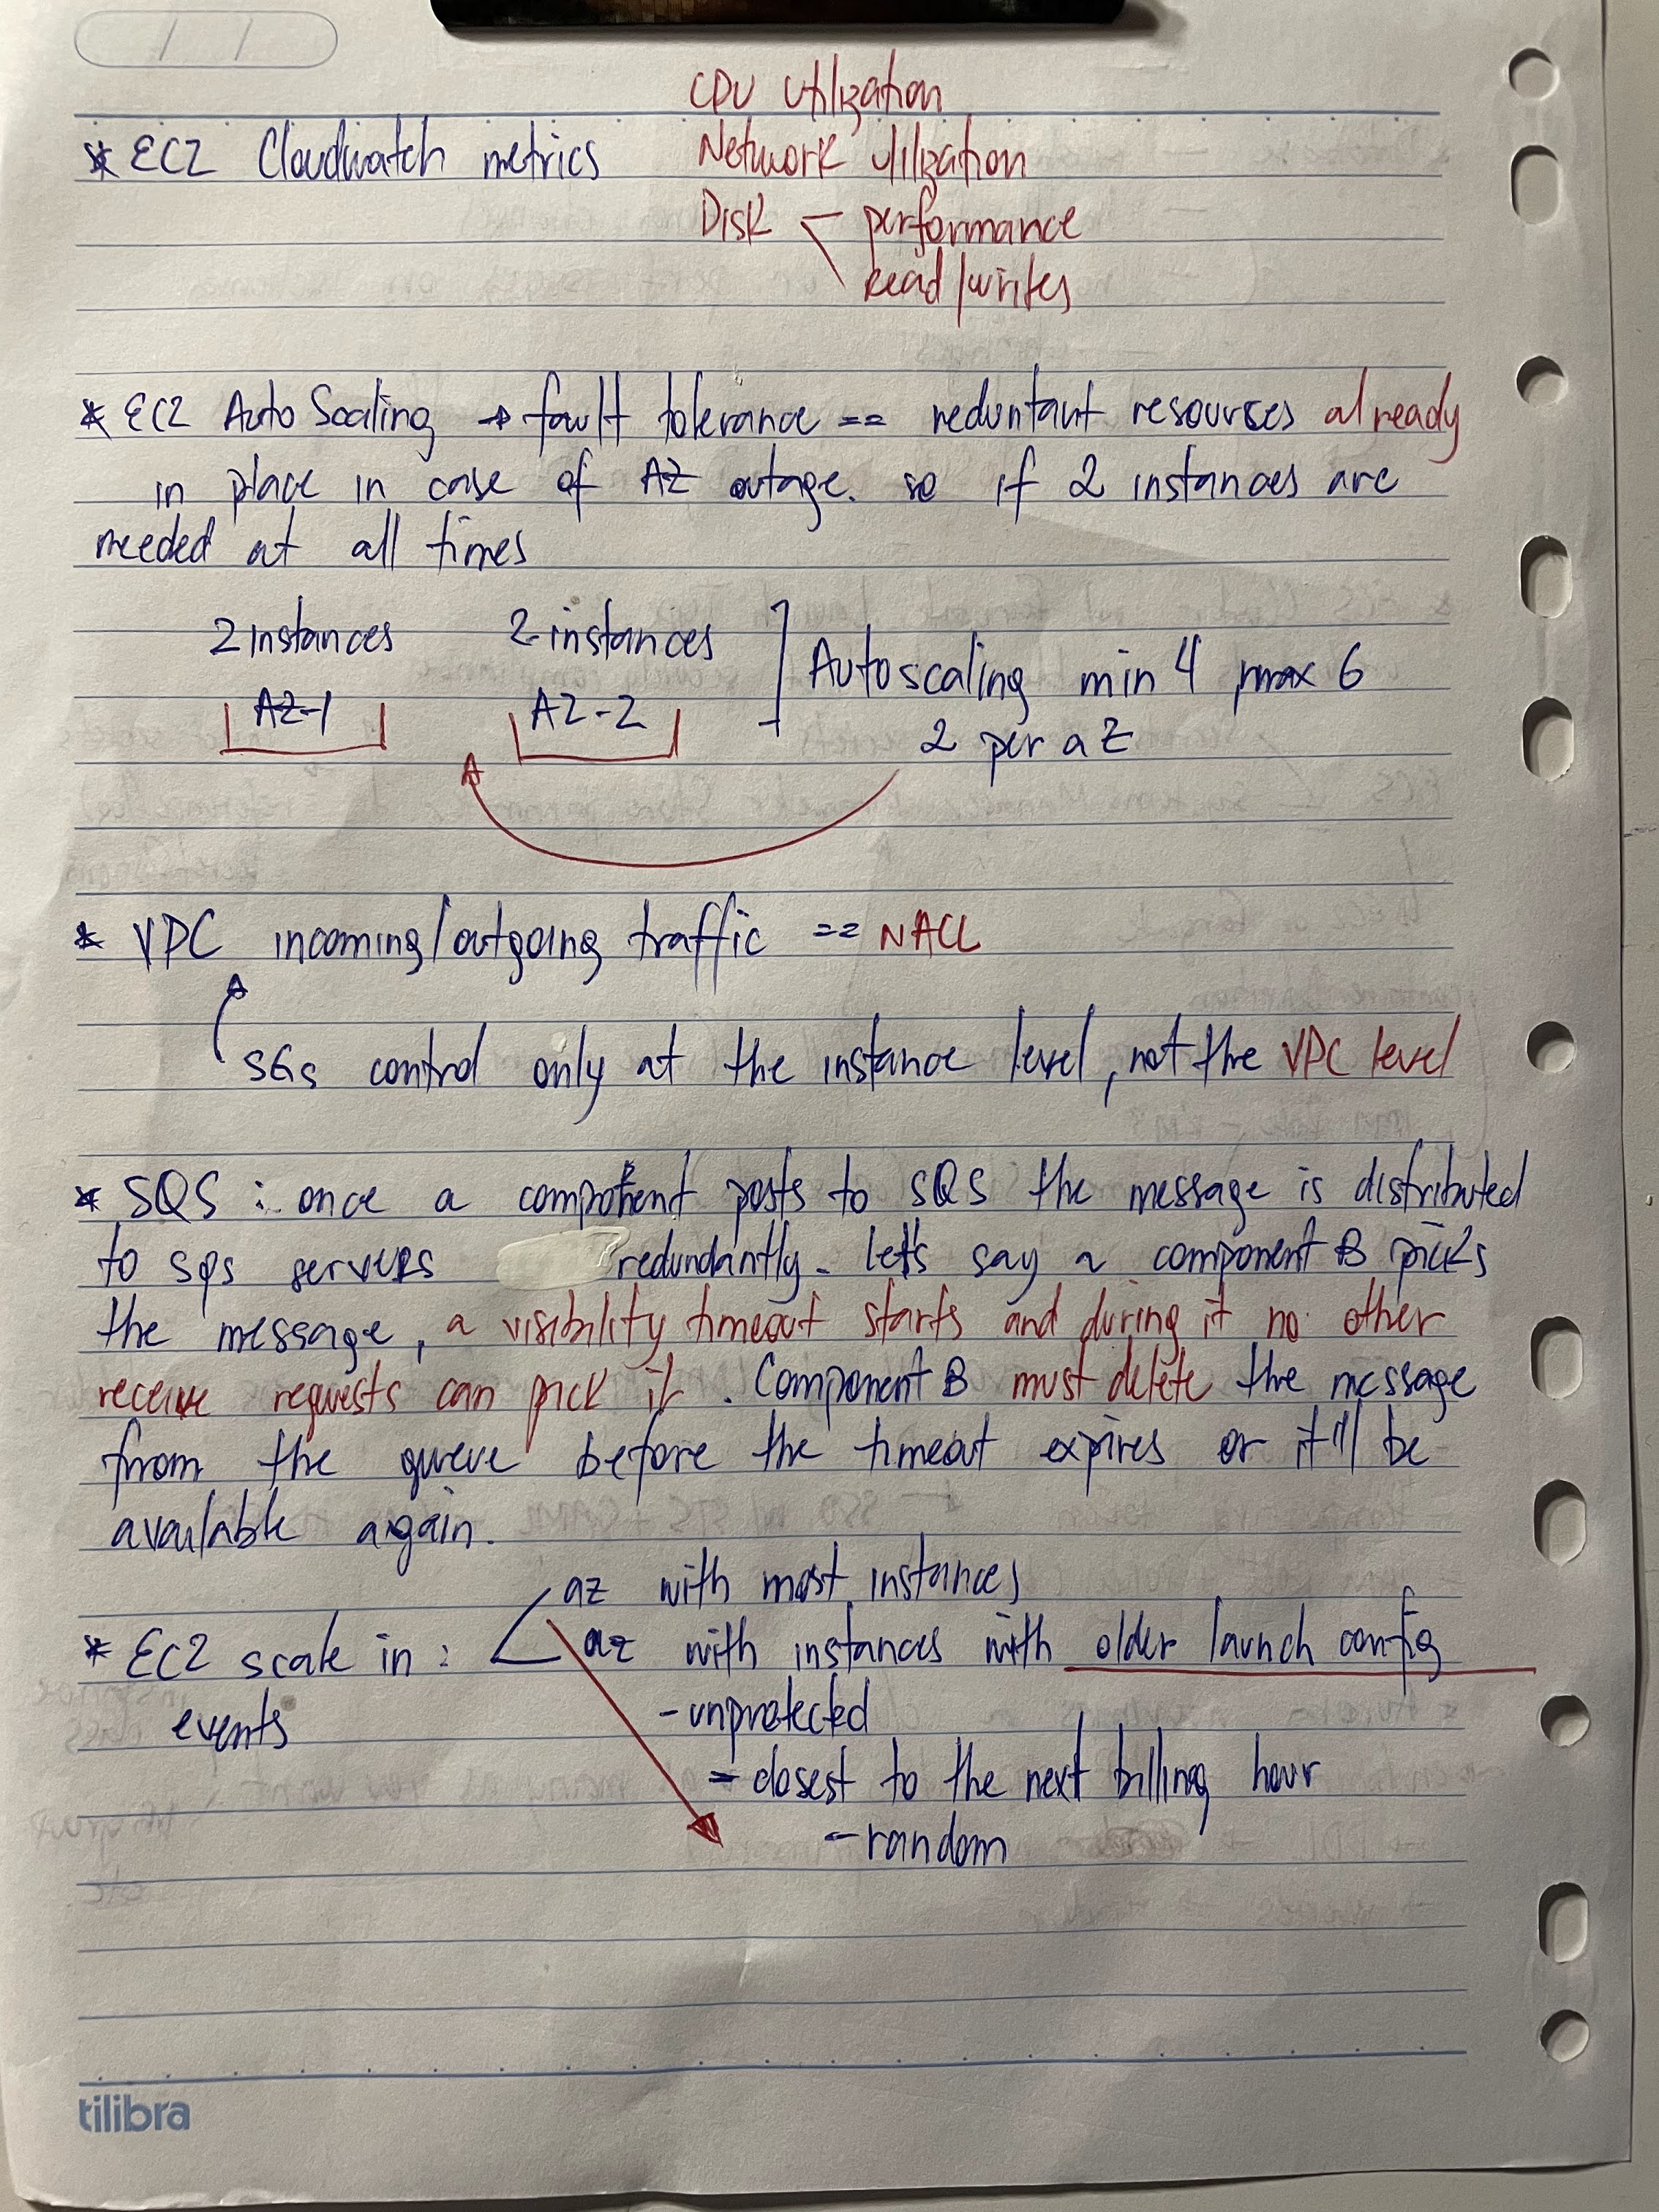 / /
CPU Utilization
* EC2 Cloudwatch metrics Network Utilization
Disk - performance
read/writes
* EC2 Auto Scaling → fault tolerance == reduntant resourses already
in place in case of AZ outage. so if 2 instances are
needed at all times
2 instances 2 instances ] Autoscaling min 4 max 6
AZ-1 AZ-2 2 per aZ
* VPC incoming/outgoing traffic == NACL
SGs control only at the instance level, not the VPC level
* SQS : once a component posts to SQS the message is distributed
to sqs servers redundantly. let's say a component B picks
the message, a visibility timeout starts and during it no other
receive requests can pick it. Component B must delete the message
from the queue before the timeout expires or it'll be
available again.
az with most instances
* EC2 scale in : az with instances with older launch config
events - unprotected
= closest to the next billing hour
- random
tilibra